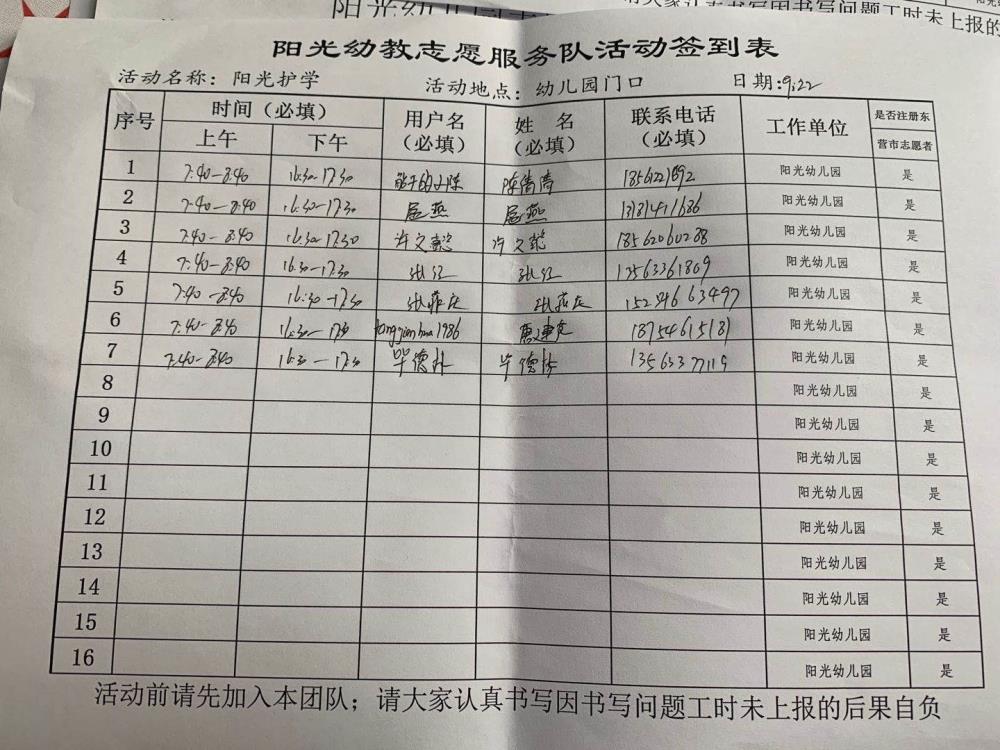 阳光幼教志愿服务队活动签到表
活动名称：阳光护学 活动地点：幼儿园门口 日期：9.22
序号 时间（必填） 用户名（必填） 姓 名（必填） 联系电话（必填） 工作单位 是否注册东营市志愿者
上午 下午
1 7:40-8:40 16:30-17:30 陈倩倩 阳光幼儿园 是
2 7:40-8:40 16:30-17:30 屈燕 屈燕 阳光幼儿园 是
3 7:40-8:40 16:30-17:30 许文懿 许文懿 18562060288 阳光幼儿园 是
4 7:40-8:40 16:30-17:30 张红 张红 13563361809 阳光幼儿园 是
5 7:40-8:40 16:30-17:30 15254663497 阳光幼儿园 是
6 7:40-8:40 16:30-17:30 18754615181 阳光幼儿园 是
7 7:40-8:40 16:30-17:30 毕德 毕德 13563377119 阳光幼儿园 是
8 阳光幼儿园 是
9 阳光幼儿园 是
10 阳光幼儿园 是
11 阳光幼儿园 是
12 阳光幼儿园 是
13 阳光幼儿园 是
14 阳光幼儿园 是
15 阳光幼儿园 是
16 阳光幼儿园 是
活动前请先加入本团队；请大家认真书写因书写问题工时未上报的后果自负